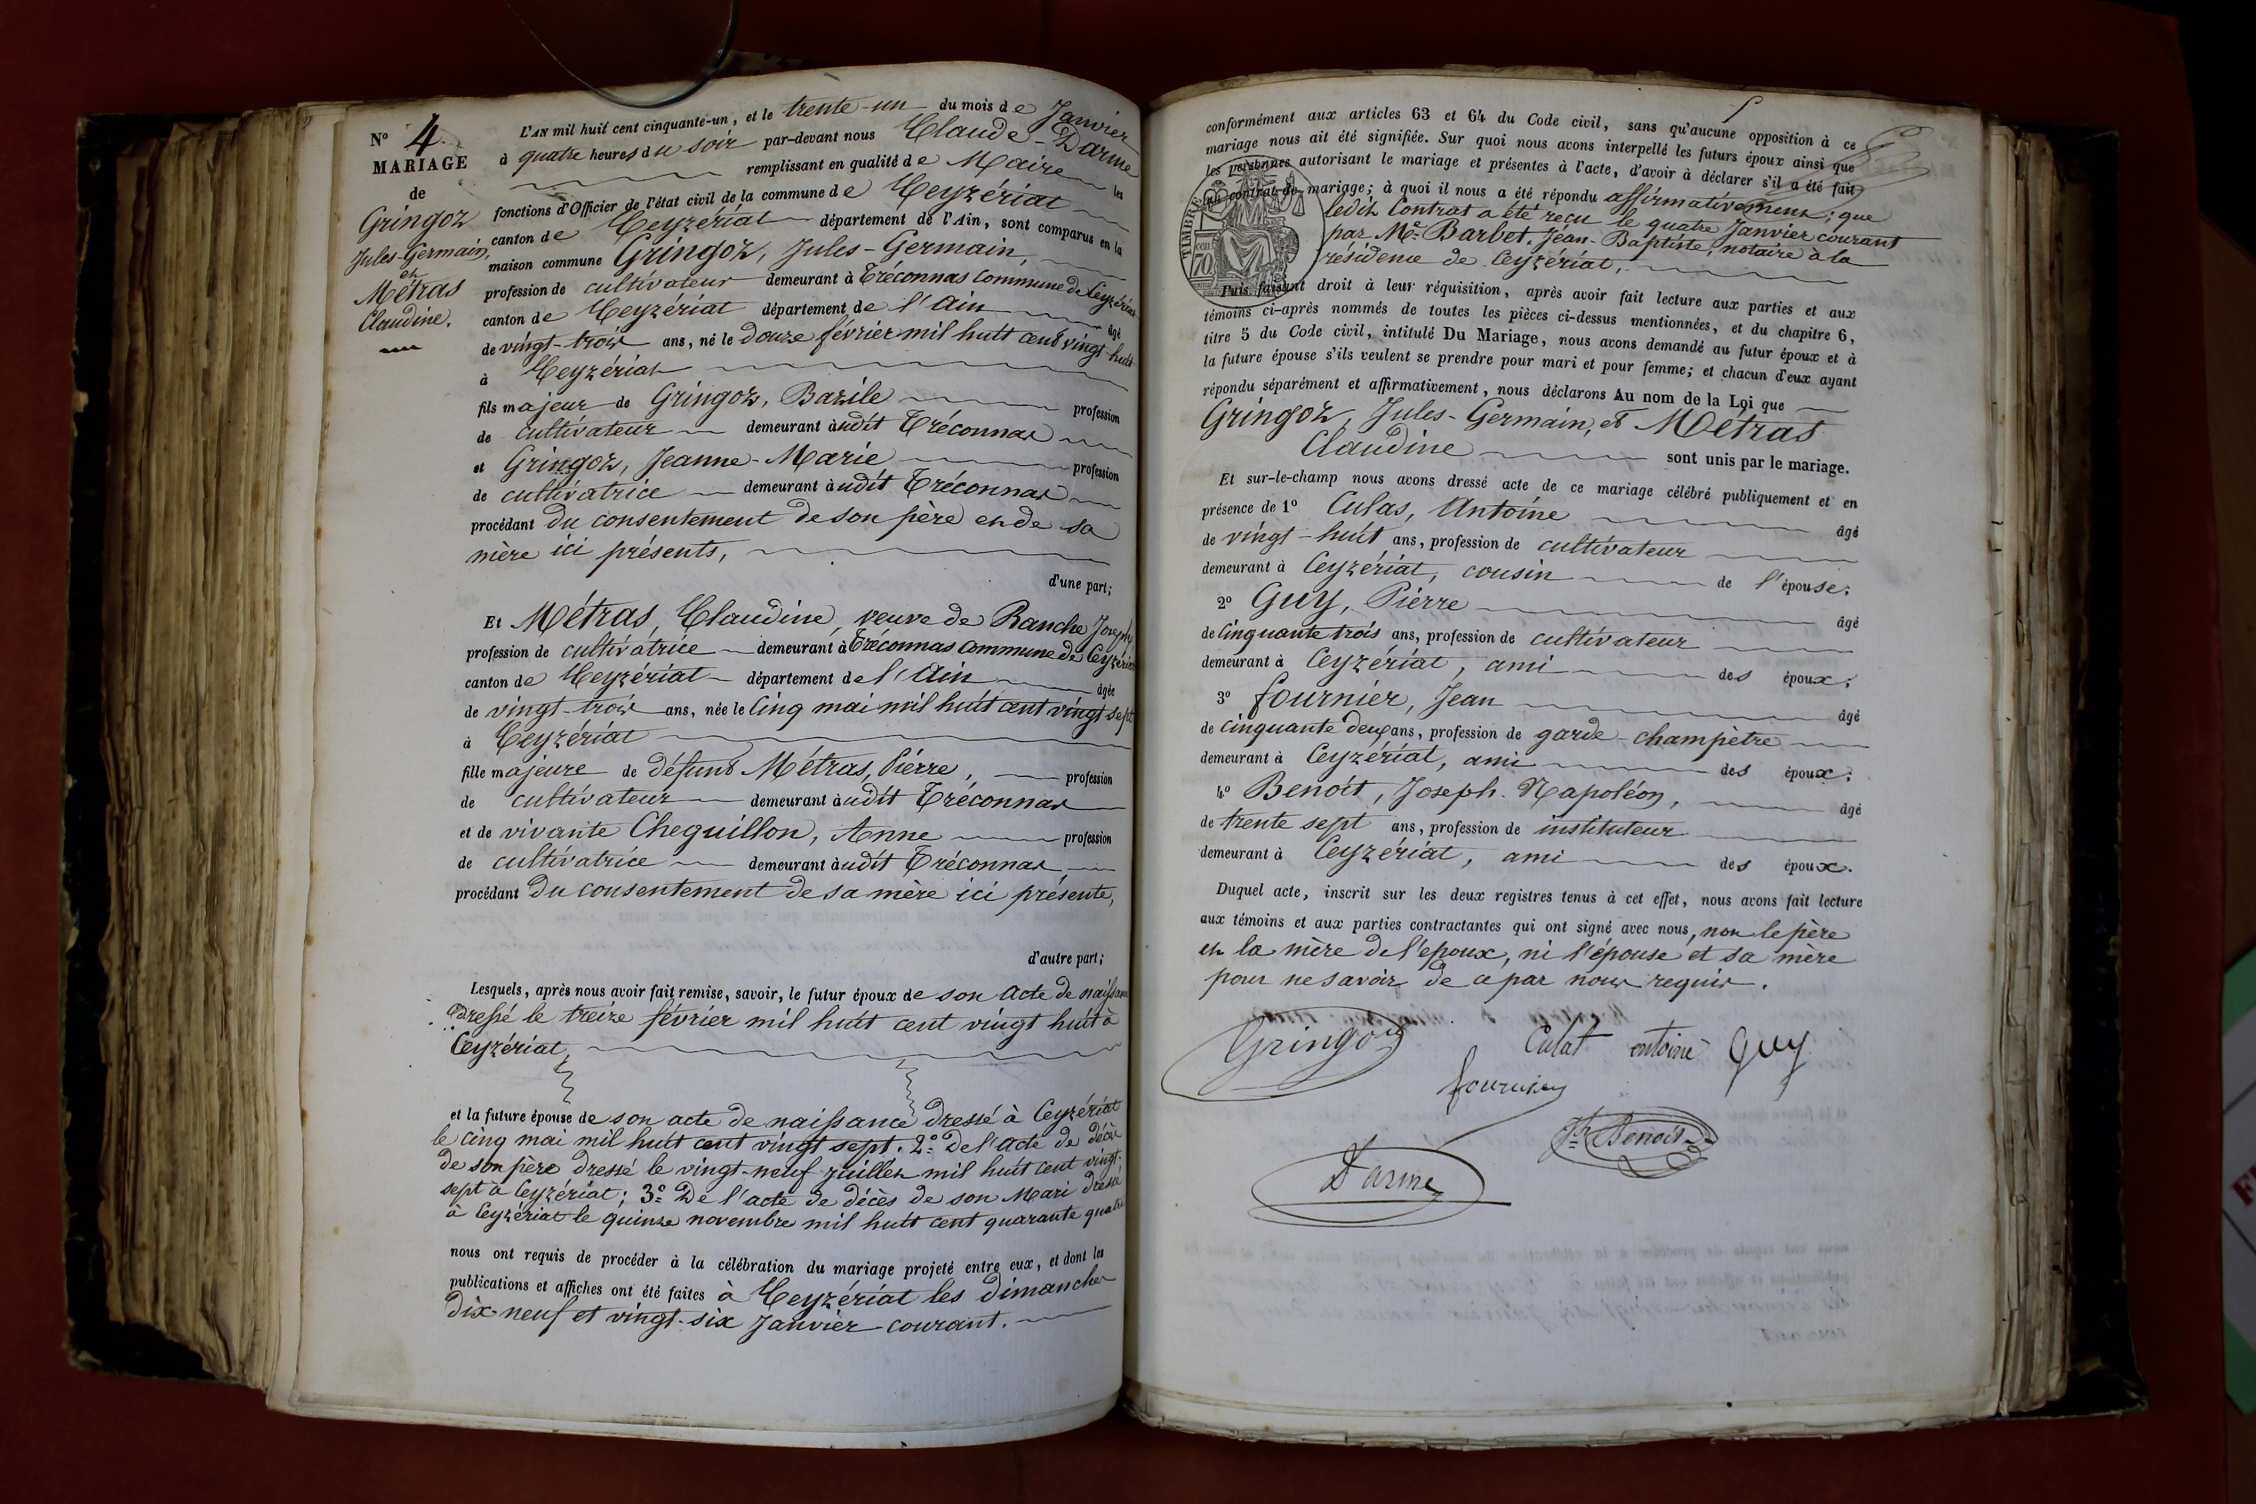 N° 4
MARIAGE
de
Gringoz
Jules-Germain,
et
Métras
Claudine.
L'AN mil huit cent cinquante-un, et le trente-un du mois de Janvier
à quatre heures du soir par-devant nous Claude-Darme
remplissant en qualité de Maire les
fonctions d'Officier de l'état civil de la commune de Ceyzériat
canton de Ceyzériat département de l'Ain, sont comparus en la
maison commune Gringoz, Jules-Germain,
profession de cultivateur demeurant à Tréconnas commune de Ceyzériat
canton de Ceyzériat département de l'Ain âgé
de vingt-trois ans, né le douze février mil huit cent vingt-huit
à Ceyzériat
fils majeur de Gringoz, Bazile profession
de cultivateur demeurant audit Tréconnas
et Gringoz, Jeanne-Marie profession
de cultivatrice demeurant audit Tréconnas
procédant du consentement de son père et de sa
mère ici présents,
d'une part;
Et Métras, Claudine, veuve de Ranche Joseph
profession de cultivatrice demeurant à Tréconnas commune de Ceyzériat
canton de Ceyzériat département de l'Ain âgée
de vingt-trois ans, née le cinq mai mil huit cent vingt sept
à Ceyzériat
fille majeure de défunt Métras, Pierre, profession
de cultivateur demeurant audit Tréconnas
et de vivante Cheguillon, Anne profession
de cultivatrice demeurant audit Tréconnas
procédant du consentement de sa mère ici présente,
d'autre part;
Lesquels, après nous avoir fait remise, savoir, le futur époux de son acte de naissance
dressé le treize février mil huit cent vingt huit à
Ceyzériat,
et la future épouse de son acte de naissance dressé à Ceyzériat
le cinq mai mil huit cent vingt sept. 2° De l'acte de décès
de son père dressé le vingt-neuf juillet mil huit cent vingt-
sept à Ceyzériat; 3° De l'acte de décès de son Mari dressé
à Ceyzériat le quinze novembre mil huit cent quarante quatre
nous ont requis de procéder à la célébration du mariage projeté entre eux, et dont les
publications et affiches ont été faites à Ceyzériat les dimanches
dix-neuf et vingt-six Janvier courant.
conformément aux articles 63 et 64 du Code civil, sans qu'aucune opposition à ce
mariage nous ait été signifiée. Sur quoi nous avons interpellé les futurs époux ainsi que
les personnes autorisant le mariage et présentes à l'acte, d'avoir à déclarer s'il a été fait
un contrat de mariage; à quoi il nous a été répondu affirmativement; que
ledit Contrat a été reçu le quatre Janvier courant
par Me Barbet, Jean-Baptiste, notaire à la
résidence de Ceyzériat,
TIMBRE
70
Puis, faisant droit à leur réquisition, après avoir fait lecture aux parties et aux
témoins ci-après nommés de toutes les pièces ci-dessus mentionnées, et du chapitre 6,
titre 5 du Code civil, intitulé Du Mariage, nous avons demandé au futur époux et à
la future épouse s'ils veulent se prendre pour mari et pour femme; et chacun d'eux ayant
répondu séparément et affirmativement, nous déclarons Au nom de la Loi que
Gringoz, Jules-Germain, et Métras
Claudine sont unis par le mariage.
Et sur-le-champ nous avons dressé acte de ce mariage célébré publiquement et en
présence de 1° Culas, Antoine âgé
de vingt-huit ans, profession de cultivateur
demeurant à Ceyzériat, cousin de l'épouse;
2° Guy, Pierre âgé
de cinquante trois ans, profession de cultivateur
demeurant à Ceyzériat, ami des époux;
3° Fournier, Jean âgé
de cinquante deux ans, profession de garde-champêtre
demeurant à Ceyzériat, ami des époux;
4° Benoît, Joseph-Napoléon, âgé
de trente sept ans, profession de instituteur
demeurant à Ceyzériat, ami des époux.
Duquel acte, inscrit sur les deux registres tenus à cet effet, nous avons fait lecture
aux témoins et aux parties contractantes qui ont signé avec nous, non le père
et la mère de l'époux, ni l'épouse et sa mère
pour ne savoir de ce par nous requis.
Gringoz Culat antoine Guy
fournier
Darme Jh Benoit